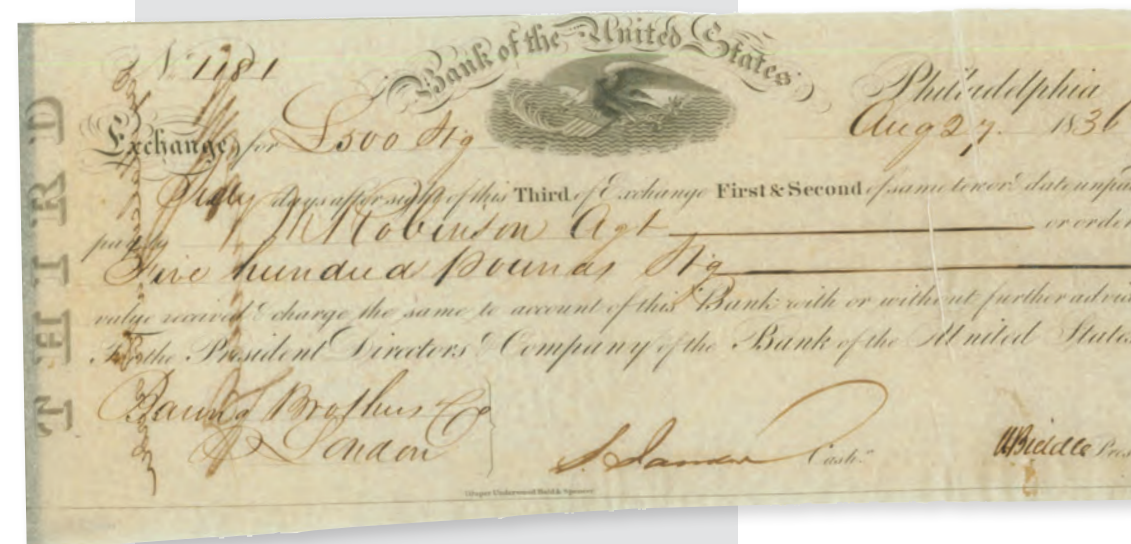 Bank of the United States
No. 1181
Philadelphia
Exchange for £500 Stg
Aug 27. 1836
days after sight of this Third of Exchange First & Second of same tenor & date unpaid
pay to Robinson Agt or order
Five hundred pounds Stg
value received & charge the same to account of this Bank with or without further advice
For the President Directors & Company of the Bank of the United States
Baring Brothers & Co
London
Cash.r
N Biddle Pres
THIRD